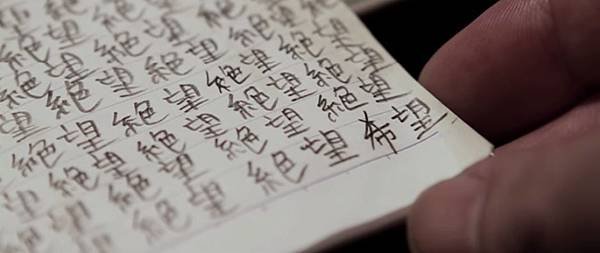 絶望絶望絶望絶望
望絶望絶望絶望絶望
絶望絶望絶望絶望
望絶望絶望絶望絶望
絶望絶望絶望絶望
望絶望絶望希望